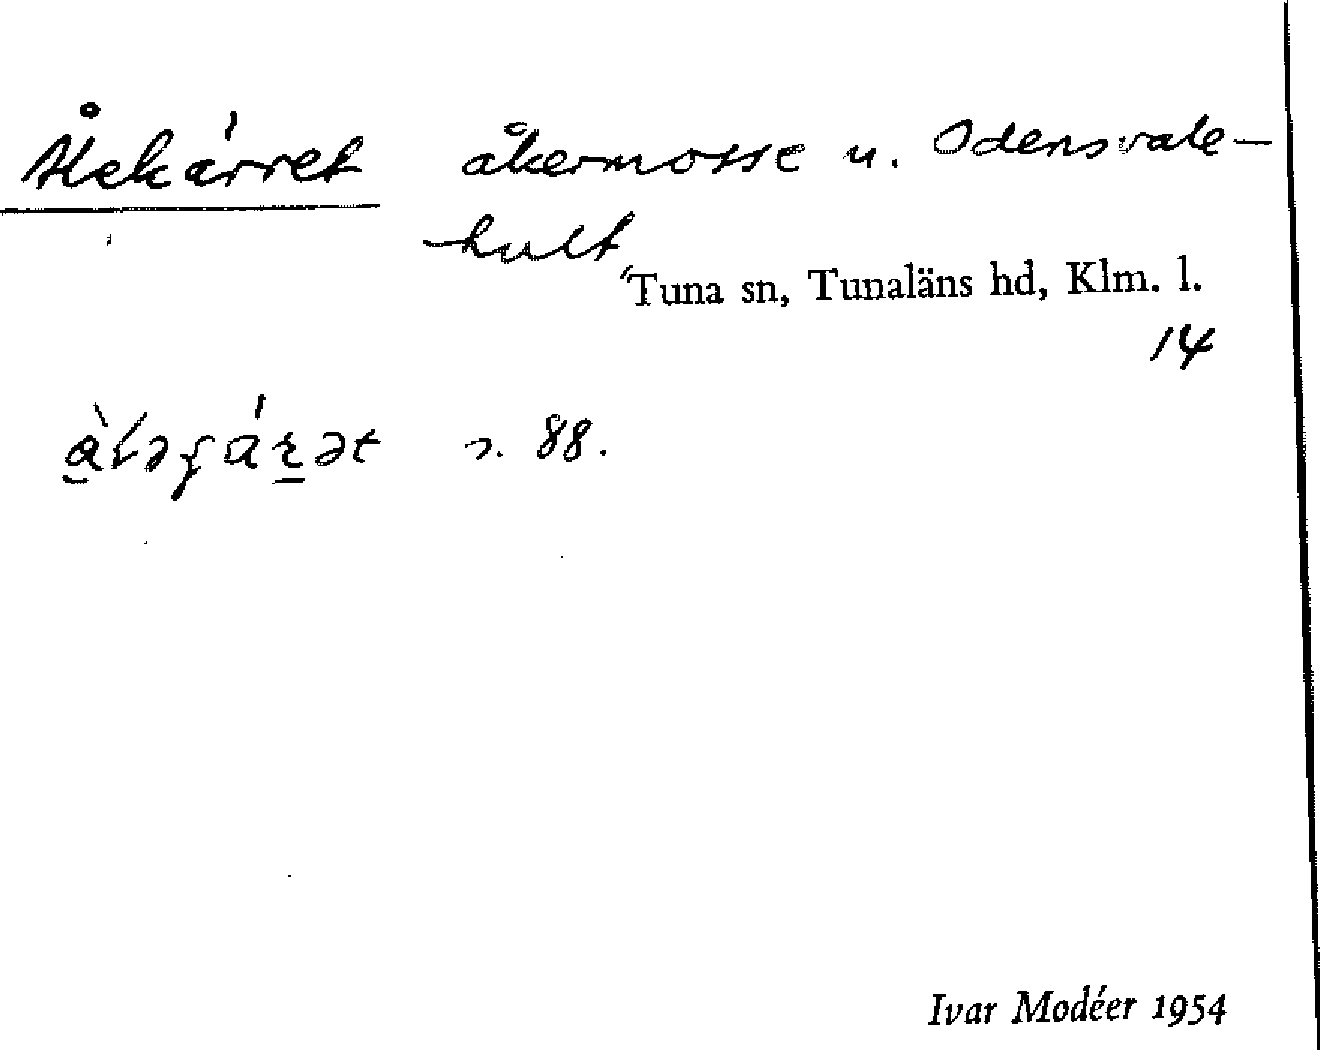 Ålekärret åkermosse u. Odensvale-
hult
Tuna sn, Tunaläns hd, Klm. l.
14
s. 88.
Ivar Modéer 1954